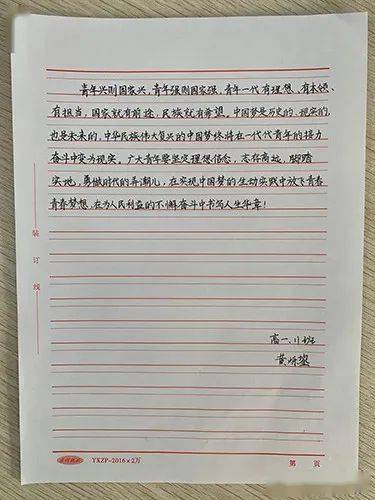 青年兴则国家兴,青年强则国家强,青年一代有理想、有本领、
有担当,国家就有前途,民族就有希望。中国梦是历史的、现实的,
也是未来的,中华民族伟大复兴的中国梦终将在一代代青年的接力
奋斗中变为现实。广大青年要坚定理想信念,志存高远,脚踏
实地,勇做时代的弄潮儿,在实现中国梦的生动实践中放飞青春
青春梦想,在为人民利益的不懈奋斗中书写人生华章!
装订线
高一.11班
黄
YXZP-2016×2万 第 页